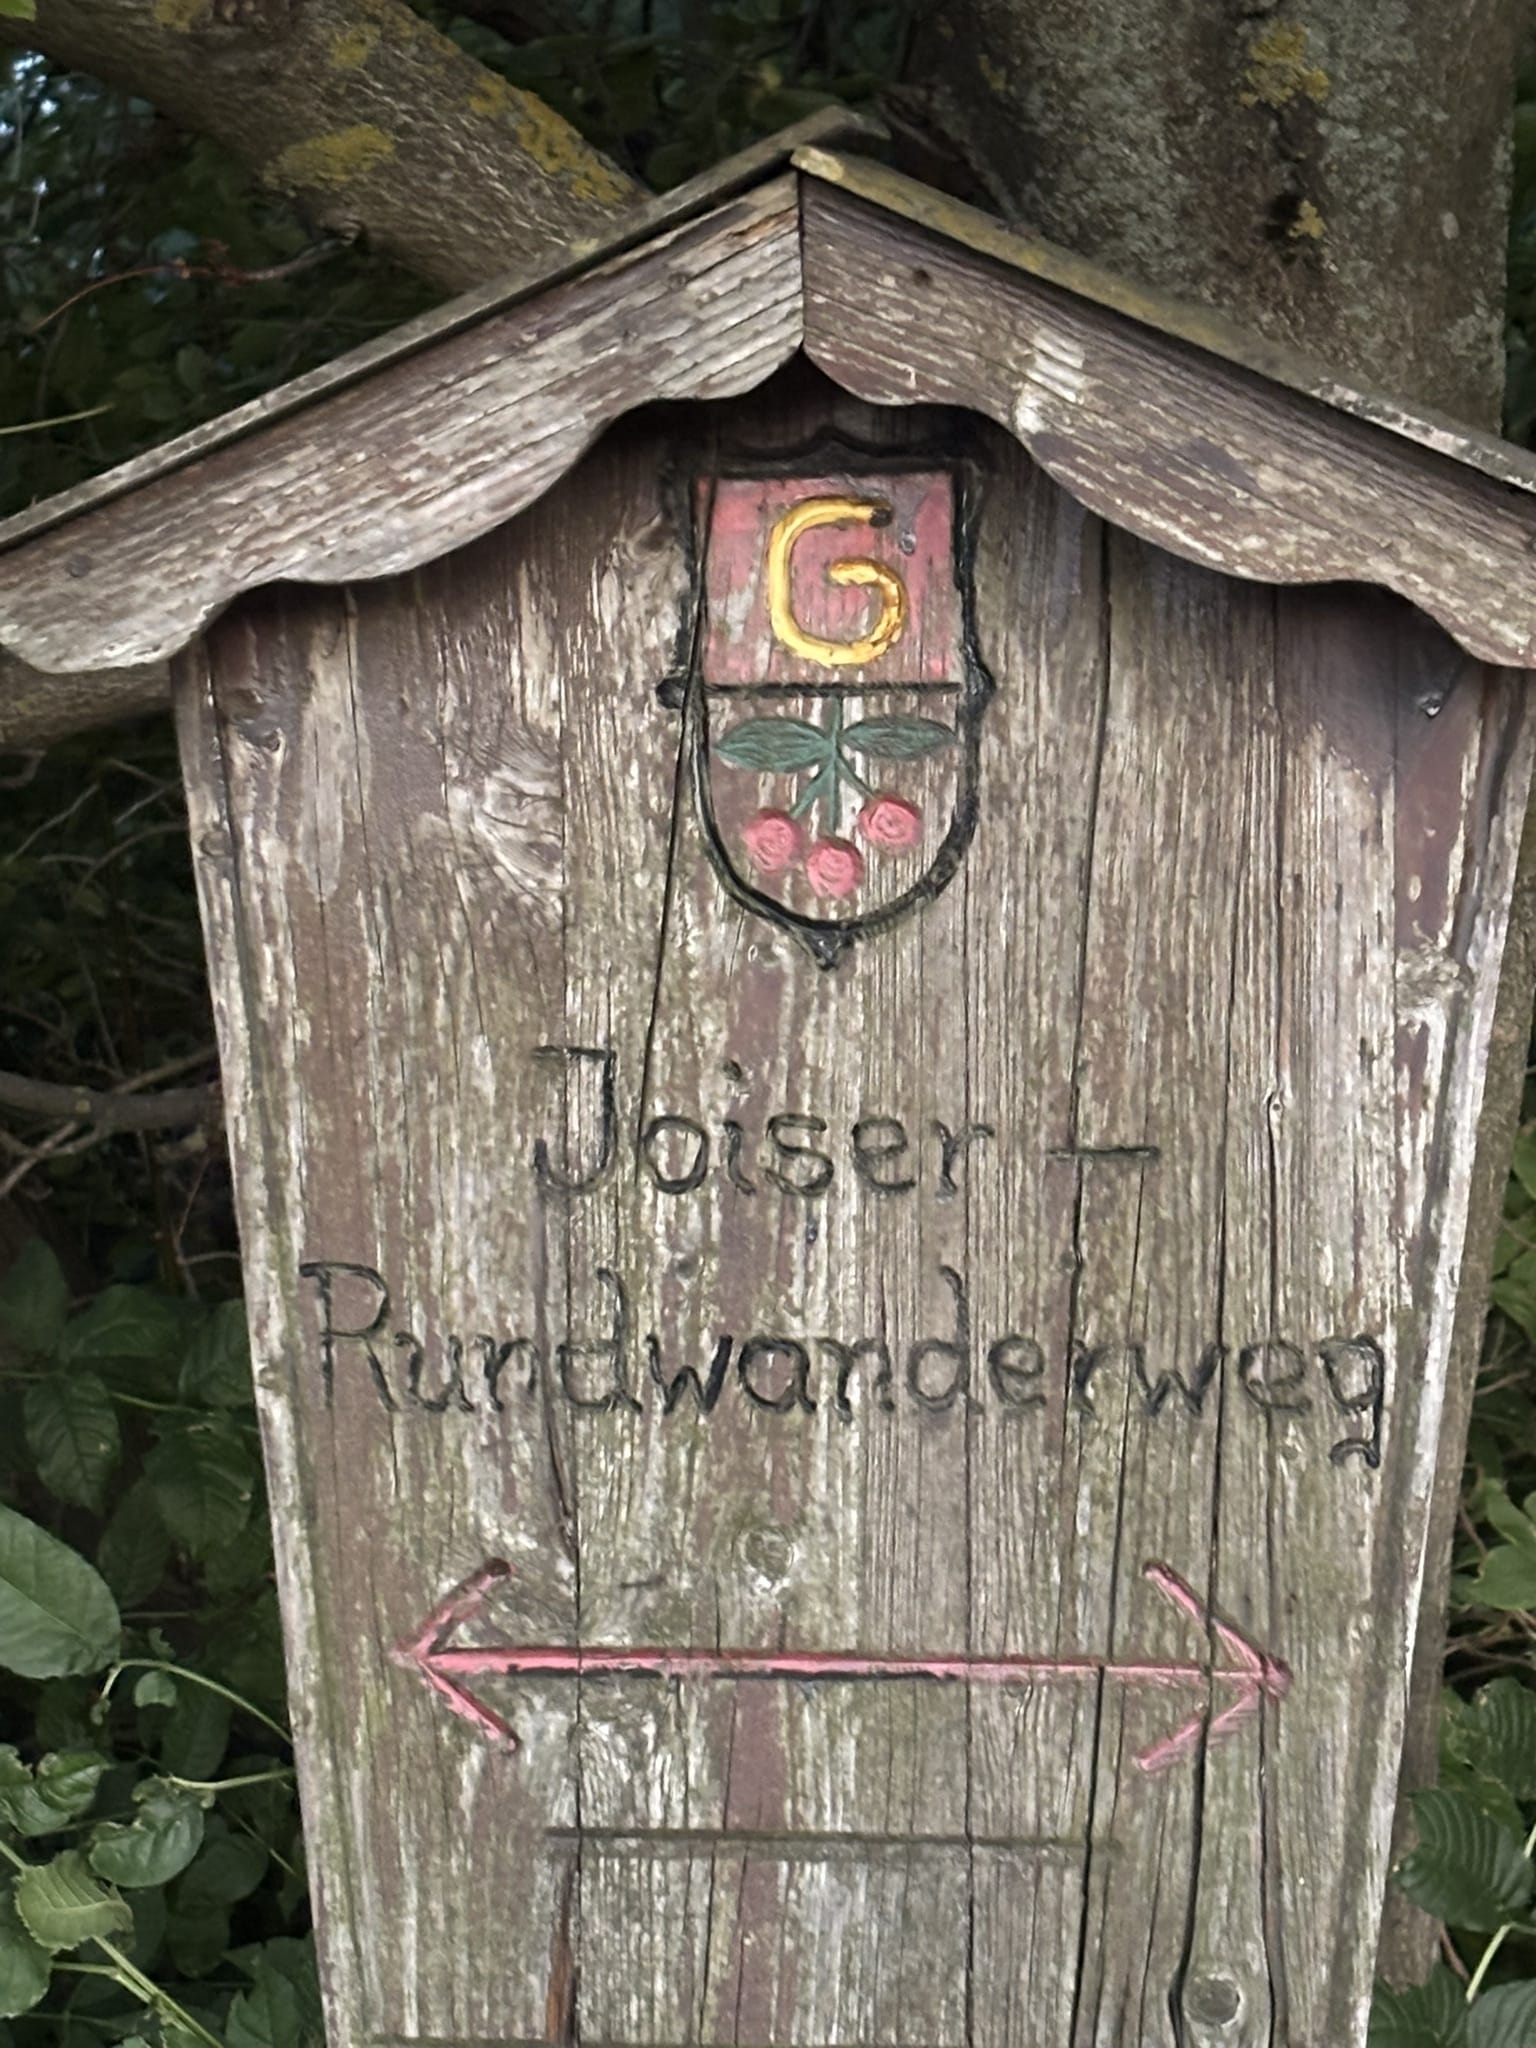 G
Joiser -
Rundwanderweg